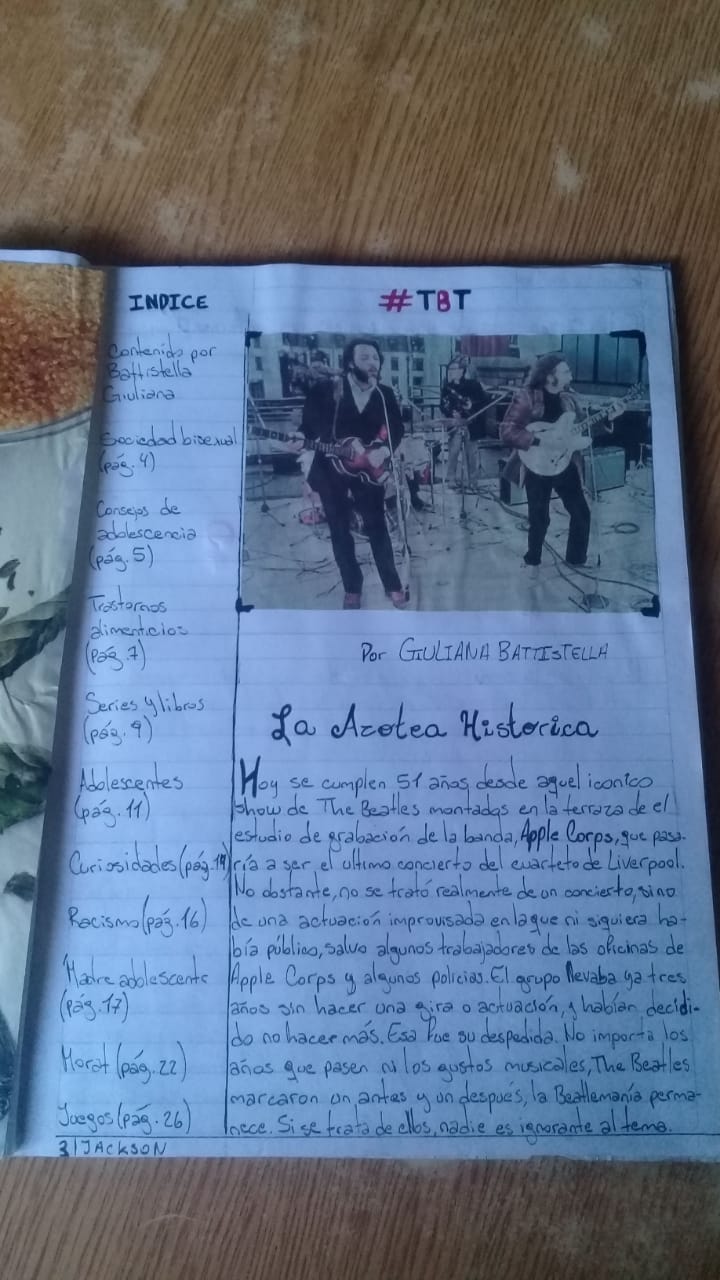 INDICE
Contenido por
Battistella
Giuliana
Sociedad bisexual
(pág. 4)
Consejos de
adolescencia
(pág. 5)
Trastornos
alimenticios
(pág. 7)
Series y libros
(pág. 9)
Adolescentes
(pág. 11)
Curiosidades (pág. 14)
Racismo (pág. 16)
Madre adolescente
(pág. 17)
Morat (pág. 22)
Juegos (pág. 26)
#TBT
Por GIULIANA BATTISTELLA
La Azotea Historica
Hoy se cumplen 51 años desde aquel iconico
show de The Beatles montados en la terraza de el
estudio de grabación de la banda, Apple Corps, que pasa-
ría a ser el ultimo concierto del cuarteto de Liverpool.
No obstante, no se trató realmente de un concierto, sino
de una actuación improvisada en la que ni siquiera ha-
bía público, salvo algunos trabajadores de las oficinas de
Apple Corps y algunos policias. El grupo llevaba ya tres
años sin hacer una gira o actuación, y habían decidi-
do no hacer más. Esa fue su despedida. No importa los
años que pasen ni los gustos musicales, The Beatles
marcaron un antes y un después, la Beatlemanía perma-
nece. Si se trata de ellos, nadie es ignorante al tema.
3 | JACKSON